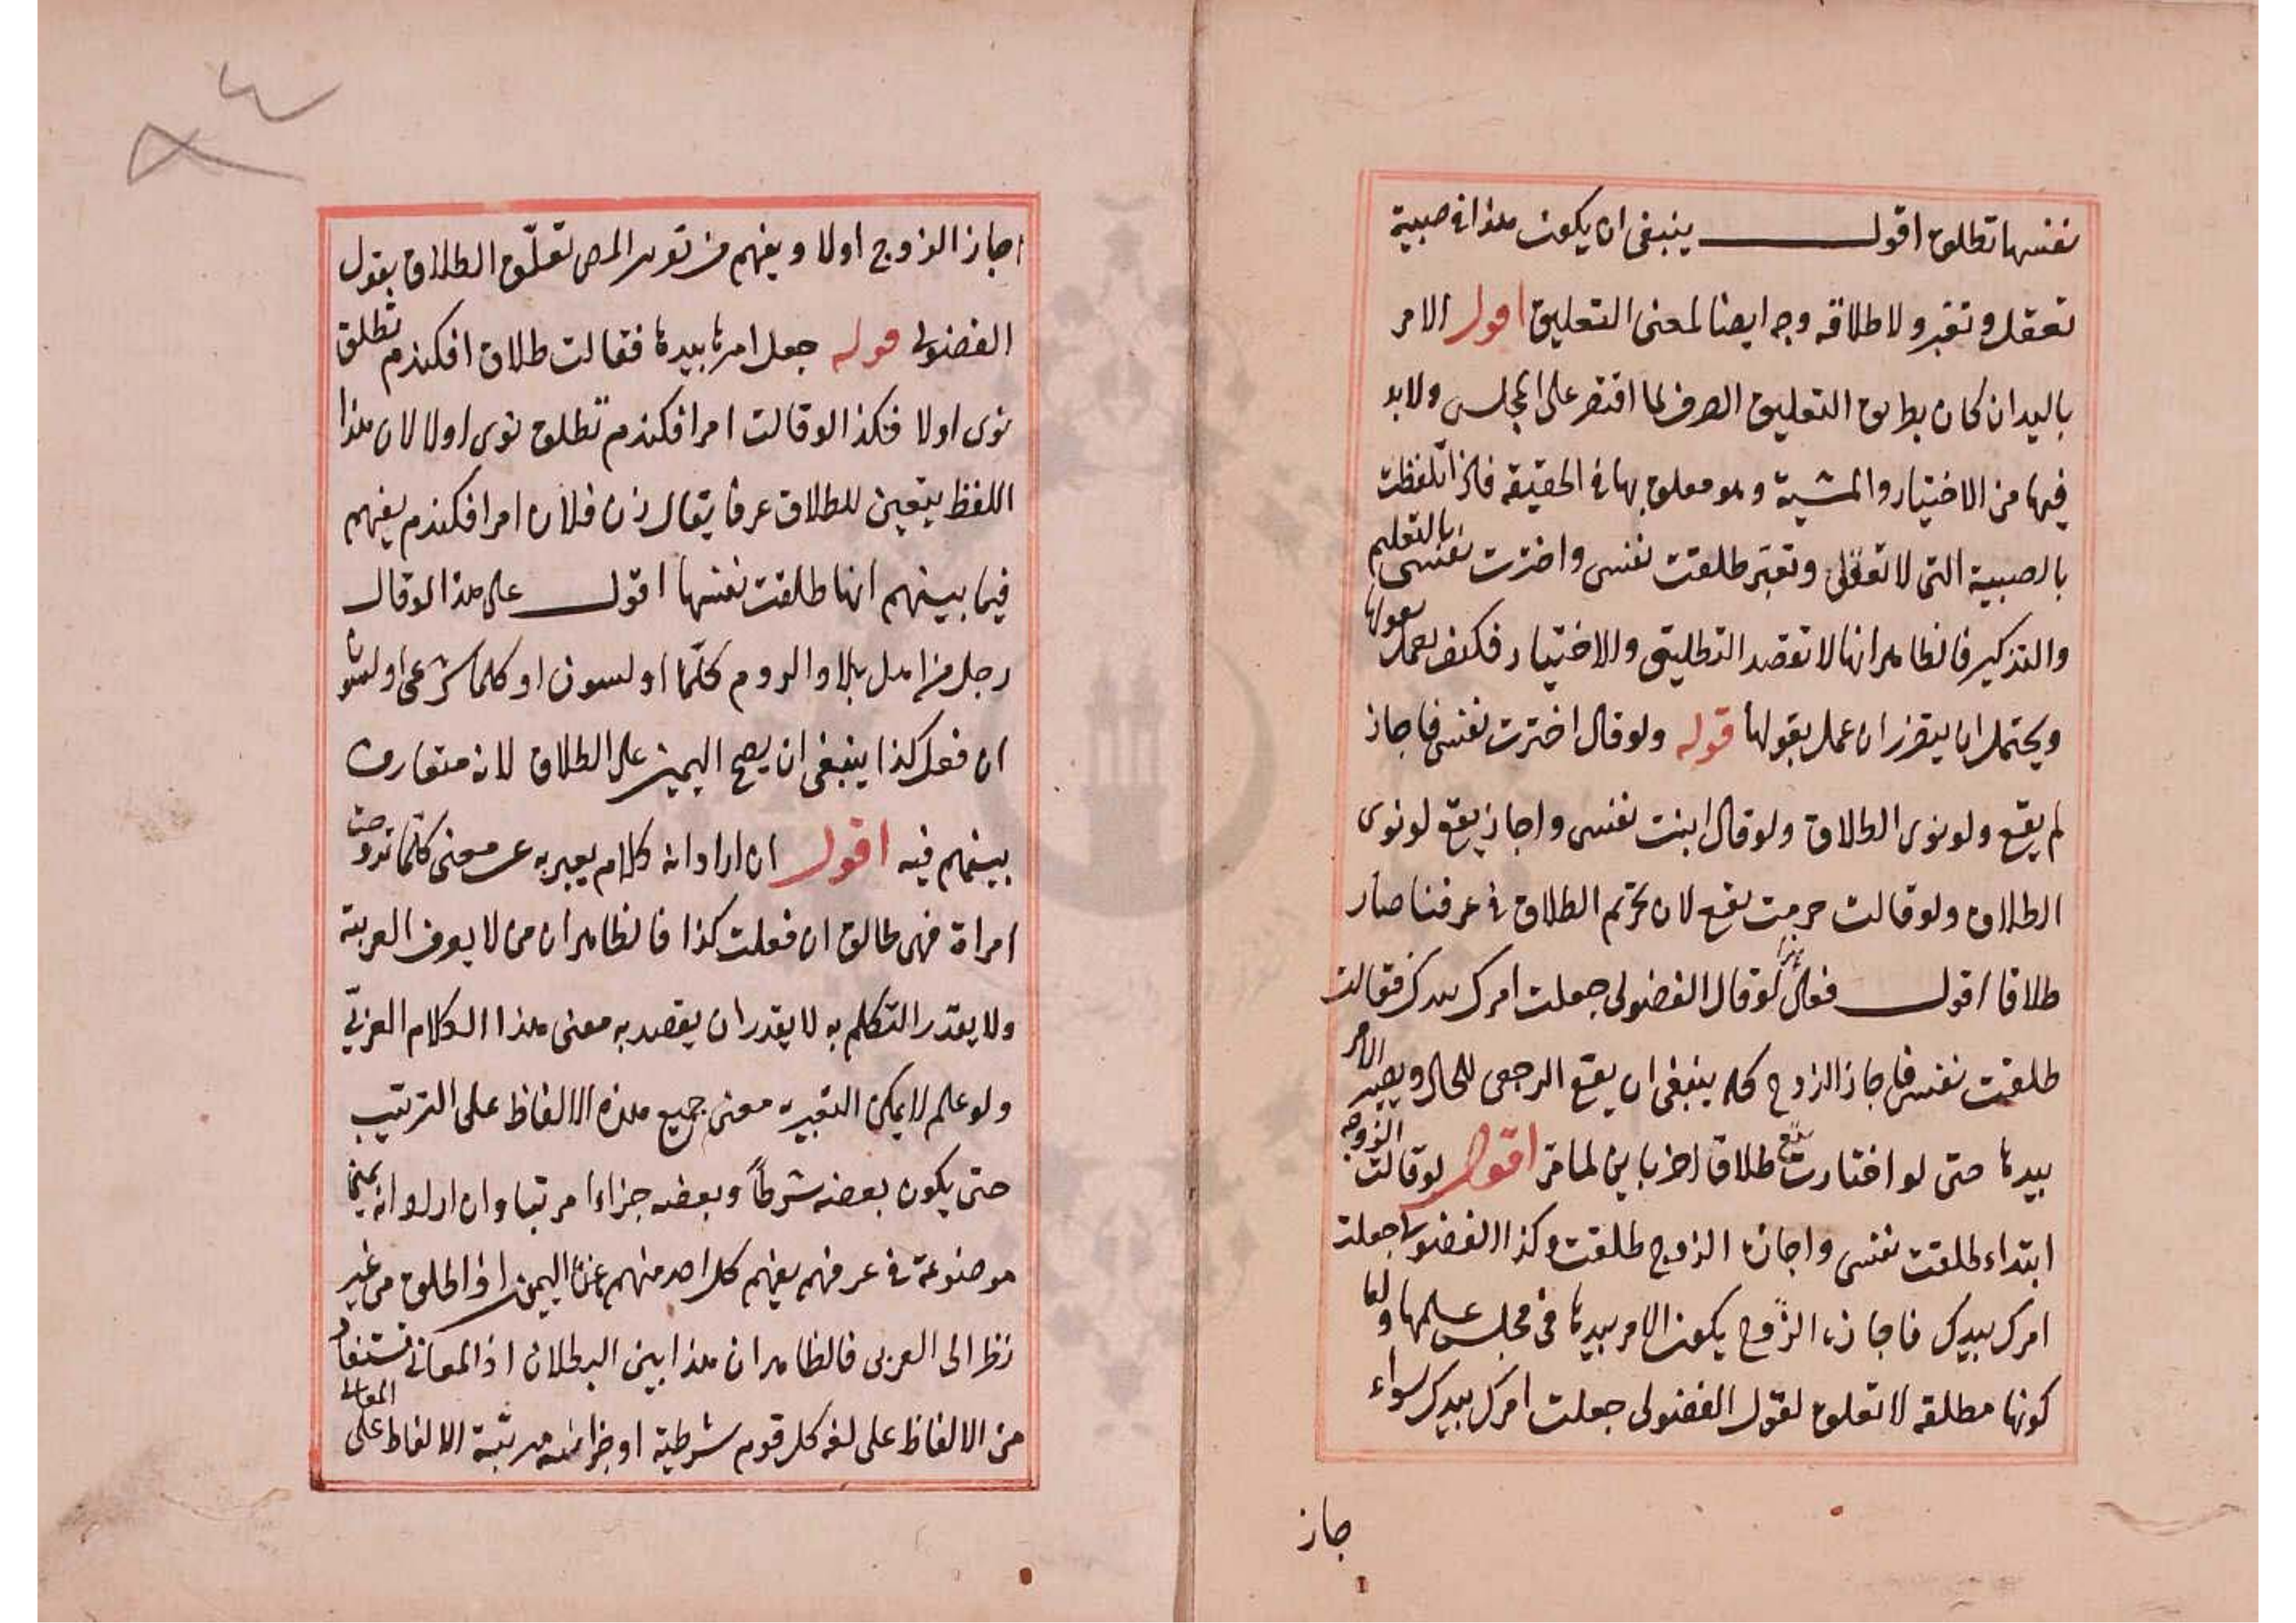 نفسها تطلق اقول ينبغى ان يكون هذا فى صبية
تعقل وتعبر ولاطلاقه وجه ايضا لمعنى التعليق اقول الامر
باليد ان كان بطريق التعليق الصرف لما اقتصر على المجلس ولا بد
فيها من الاختيار والمشية وهو معلق بها فى الحقيقة فاذا تلفظت
بالصبية التى لا تعقل وتعبر طلقت نفسى واخترت نفسى بالتعليم
والتذكير فالظاهر انها لا تقصد التطليق والاختيار فكيف يعمل بقولها
ويحتمل ان يتقرر ان عمل بقولها قوله ولو قال اخترت نفسى فاجاز
لم يقع ولو نوى الطلاق ولو قال ابنت نفسى واجاز يقع لو نوى
الطلاق ولو قالت حرمت يقع لان تحريم الطلاق فى عرفنا صار
طلاقا اقول فعلى هذا لو قال الفضولى جعلت امرك بيدك فقالت
طلقت نفسى فاجاز الزوج كله ينبغى ان يقع الرجعى للحال ويصير الامر
بيدها حتى لو اختارت يقع طلاقا اخر باين لما مر اقول لو قالت الزوجه
ابتداء طلقت نفسى واجازه الزوج طلقت وكذا الفضولى جعلت
امرك بيدك فاجازه الزوج يكون الامر بيدها فى مجلس علمها ولها
كونها مطلقه لا تعلق لقول الفضولى جعلت امرك بيدك سواء
جاز
اجاز الزوج اولا ويفهم من تقرير المص تعلّق الطلاق بقول
الفضولى قوله جعل امرها بيدها فقالت طلاق افكندم تطلق
نوى اولا فكذا لو قالت امرا فكندم تطلق نوى اولا لان هذا
اللفظ يتعين للطلاق عرفا يقال زن فلان امرا فكندم يفهم
فيما بينهم انها طلقت نفسها اقول على هذا لو قال
رجل من اهل بلاد الروم كلّما اولسون او كلما شرعى اولسون
ان فعل كذا ينبغى ان يصح اليمين على الطلاق لانه متعارف
بينهم فيه اقول ان اراد انه كلام يعبر به عن معنى كلّما تزوجت
امراة فهى طالق ان فعلت كذا فالظاهر ان من لا يعرف العربية
ولا يقدر التكلم به لا يقدر ان يقصد به معنى هذا الكلام العربىّ
ولو علم لا يمكن التعبير به معنى جميع هذه الالفاظ على الترتيب
حتى يكون بعضه شرطاً وبعضه جزاءا مرتبا وان اراد انه
موضوعة فى عرفهم يفهم كل احد منهم اليمين اذا اطلق من غير
نظر الى العربى فالظاهر ان هذا بين البطلان اذ المعانى تستفاد
من الالفاظ على لغة كل قوم شرطية او جزائية مرتبة الالفاظ على المعانى